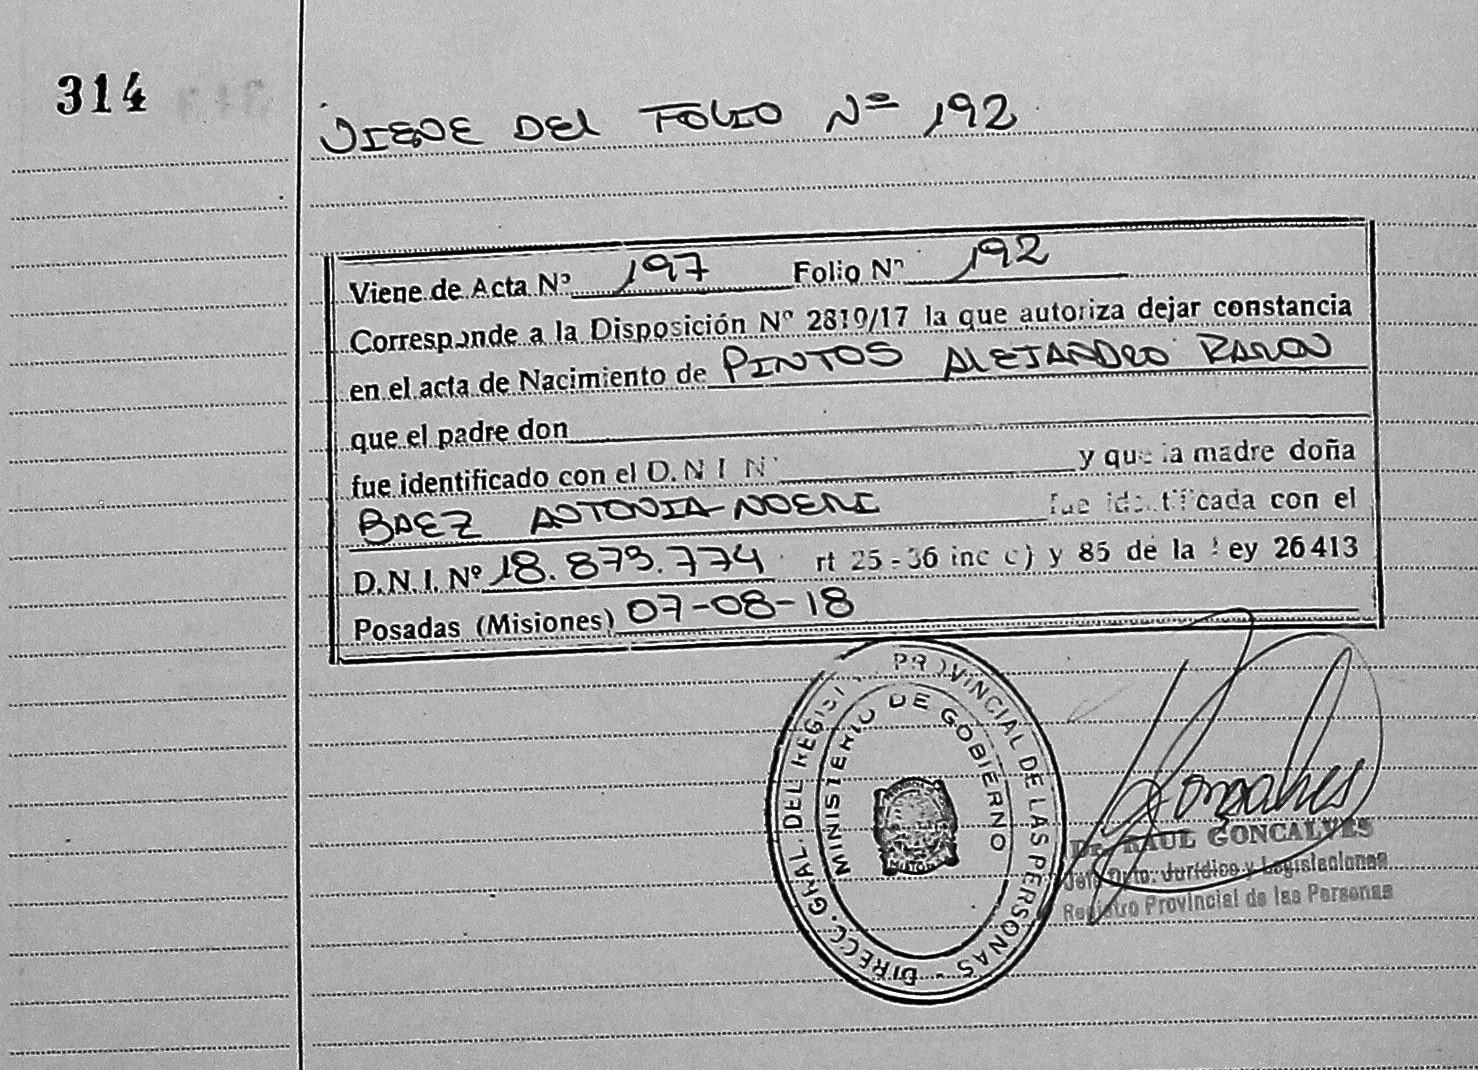 314
VIENE DEL FOLIO Nº 192
Viene de Acta Nº 197 Folio Nº 192
Corresponde a la Disposición Nº 2819/17 la que autoriza dejar constancia
en el acta de Nacimiento de PINTOS ALEJANDRO RAMON
que el padre don
fue identificado con el D.N I N
y que la madre doña
BAEZ ANTONIA NOEMI fue identificada con el
D.N.I. Nº 18.873.774 rt 25 - 36 inc c) y 85 de la ley 26413
Posadas (Misiones) 07-08-18
DIRECC. GRAL. DEL REGIST PROVINCIAL DE LAS PERSONAS -
MINISTERIO DE GOBIERNO
Goncalves
Dr. RAUL GONCALVES
Jefe Dpto. Jurídico y Legislaciones
Registro Provincial de las Personas